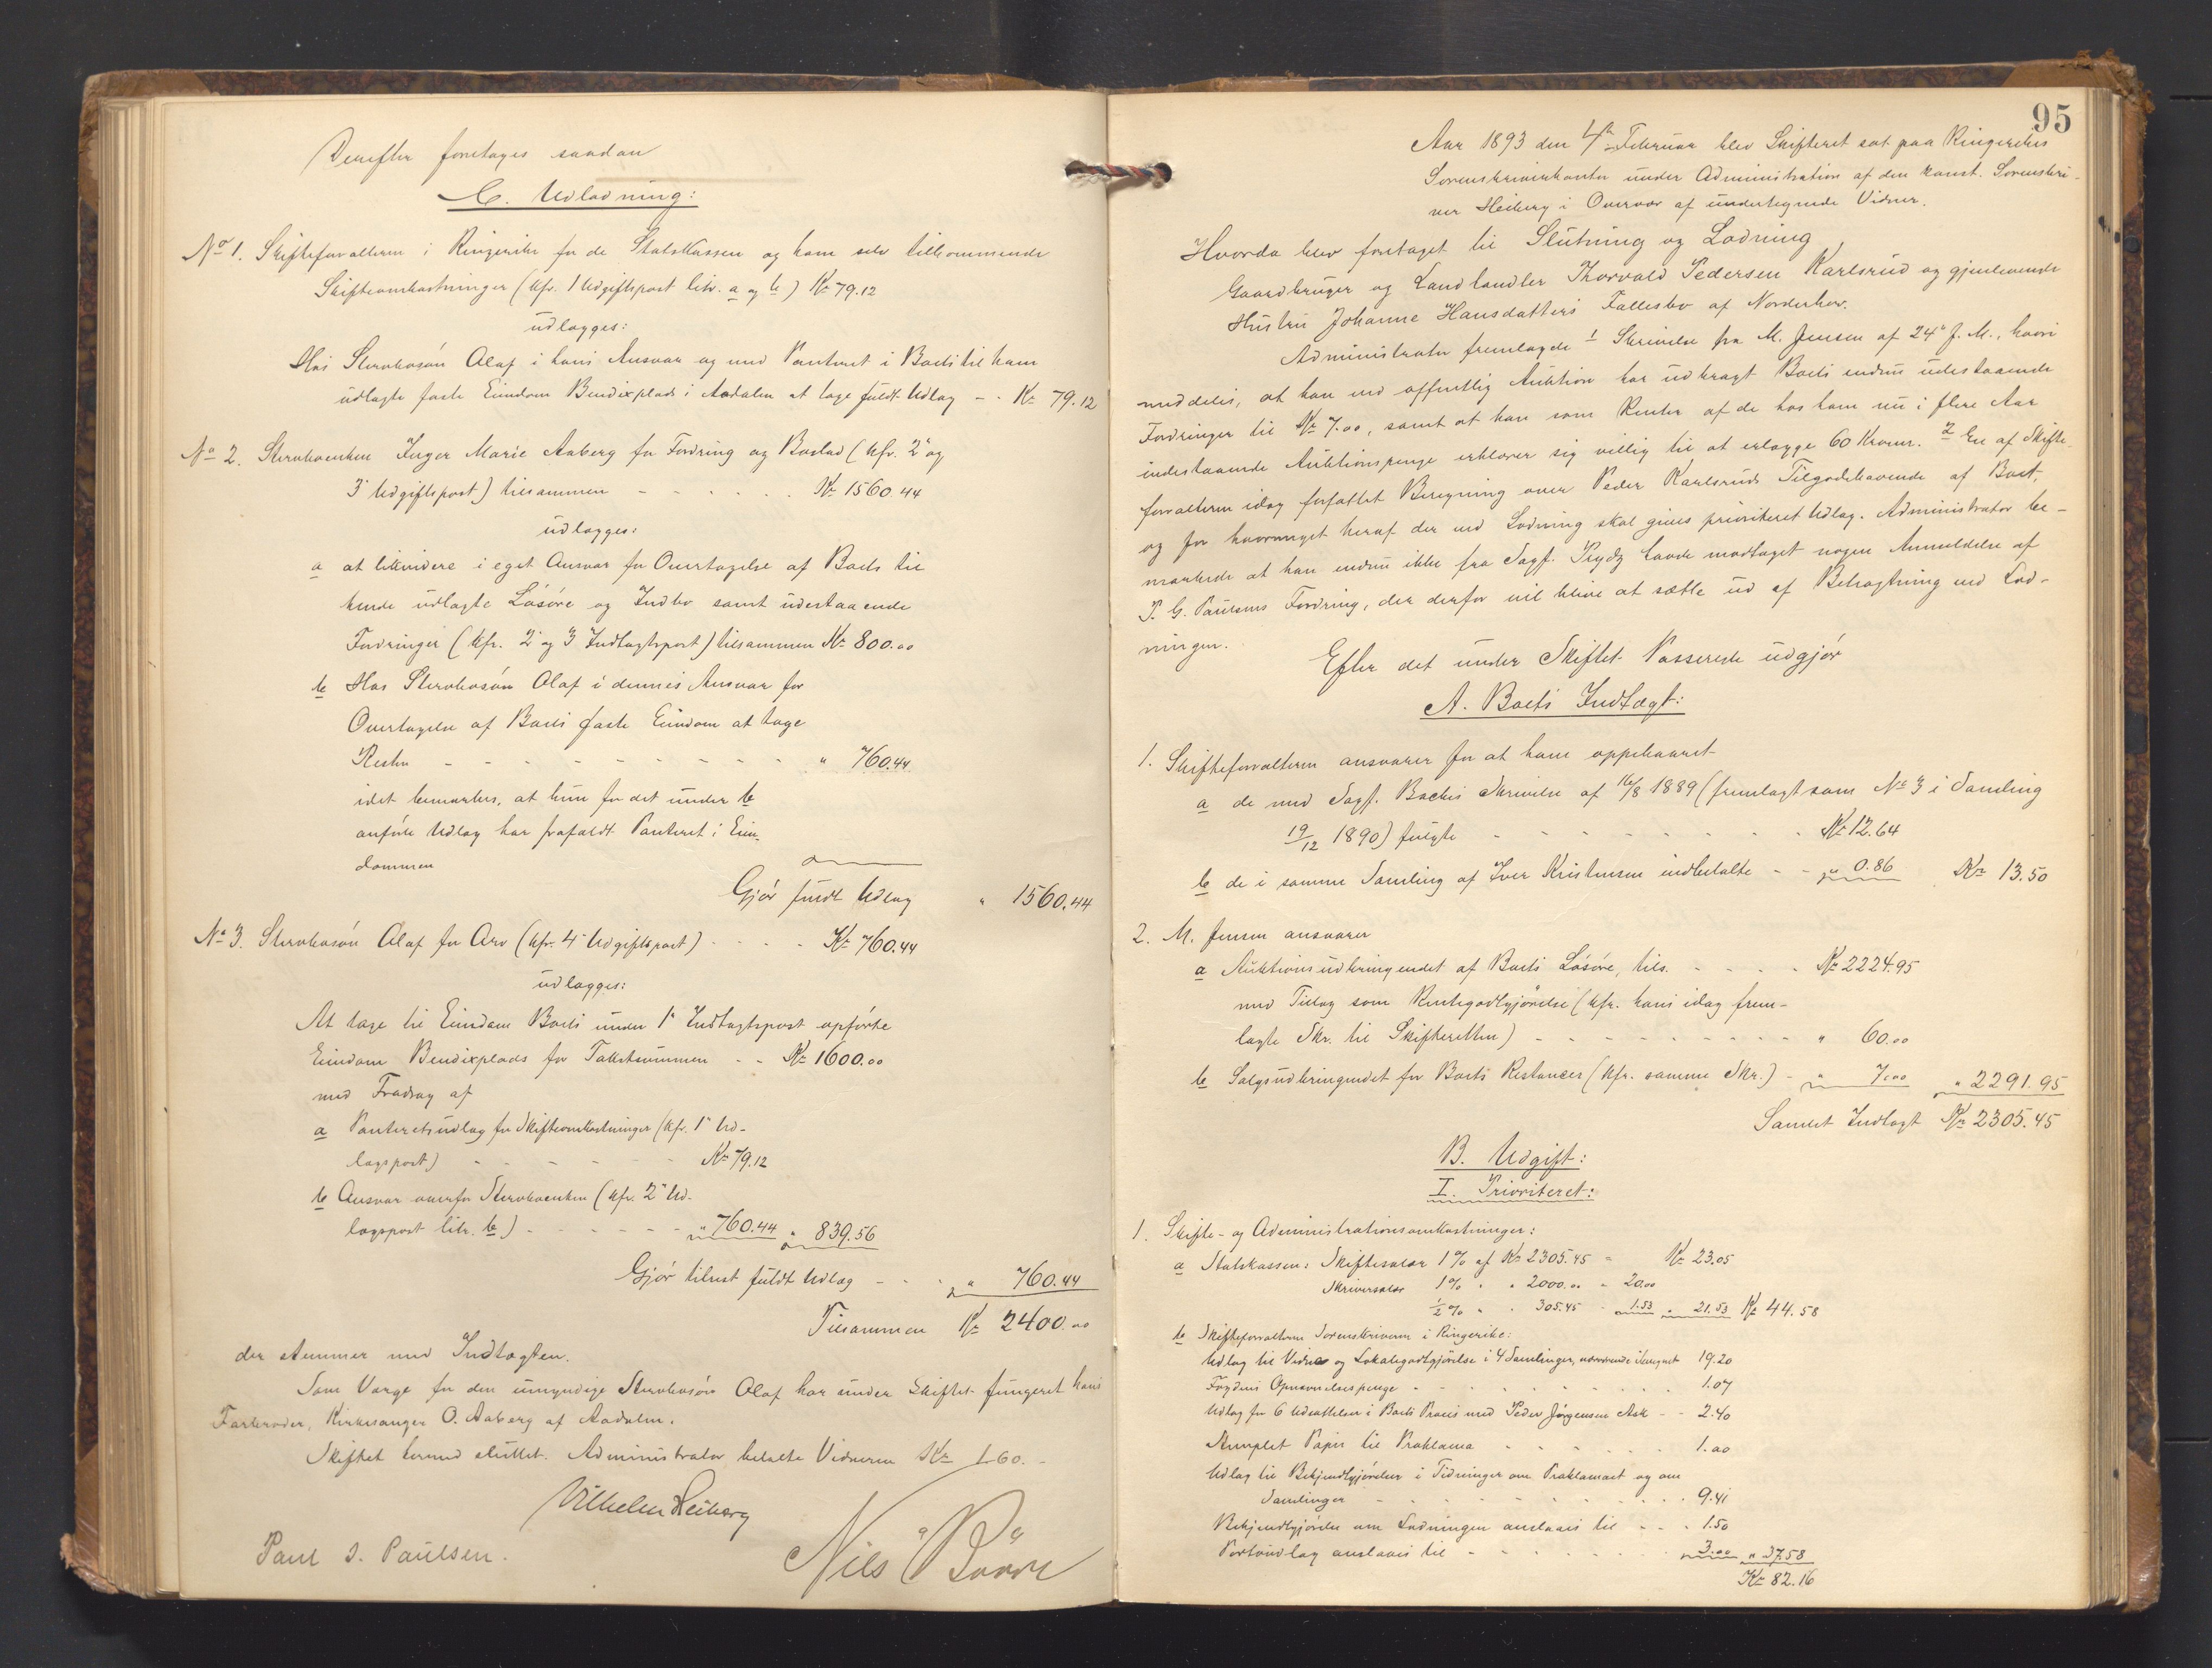 Derefter foretages saadan
C. Udlodning:
No 1. Skifteforvalteren i Ringerike for de Statskassen og ham selv tilkommende
Skifteomkostninger (kfr. 1 Udgiftspost litr. a og b) Kr 79.12
udlægges:
Hos Stervbosøn Olaf i hans Ansvar og med Panteret i Boets til ham
udlagte faste Eiendom Bendixplads i Aadalen at tage fuldt Udlæg - - Kr 79.12
No 2. Stervboenken Inger Marie Aaberg for Fordring og Boslod (kfr. 2' og
3' Udgiftspost) tilsammen - - - - - - Kr 1560.44
udlægges:
a at likvidere i eget Ansvar for Overtagelse af Boets til
hende udlagte Løsøre og Indbo samt udestaaende
Fordringer (kfr. 2' og 3' Indtægtspost) tilsammen Kr 800.00
b Hos Stervbosøn Olaf i dennes Ansvar for
Overtagelse af Boets faste Eiendom at tage
Resten - - - - - - - - - " 760.44
idet bemærkes, at hun for det under b
anførte Udlæg har frafaldt Panteret i Eien-
dommen
Gjør fuldt Udlæg " 1560.44
No 3. Stervbosøn Olaf for Arv (kfr. 4' Udgiftspost) - - - - Kr 760.44
udlægges:
At tage til Eiendom Boets under 1' Indtægtspost opførte
Eiendom Bendixplads for Takstsummen - - Kr 1600.00
med Fradrag af
a Panteretsudlæg for Skifteomkostninger (kfr. 1' Ud-
lægspost) - - - - - Kr 79.12
b Ansvar overfor Stervboenken (kfr. 2' Ud-
lægspost litr. b) - - - - - " 760.44 " 839.56
Gjør tilrest fuldt Udlæg - - - " 760.44
Tilsammen Kr 2400.00
der stemmer med Indtægten.
Som Værge for den umyndige Stervbosøn Olaf har under Skiftet fungeret hans
Farbroder, Kirkesanger O. Aaberg af Aadalen.
Skiftet hermed sluttet. Administrator betalte Vidnerne Kr 1.60. -
Vilhelm Heiberg
Paul J. Paulsen. Nils Baarn
95
Aar 1893 den 4de Februar blev Skifteret sat paa Ringerikes
Sorenskriverkontor under Administration af den konst. Sorenskri-
ver Heiberg i Overvær af undertegnede Vidner.
Hvorda blev foretaget til Slutning og Lodning
Gaardbruger og Landhandler Thorvald Pedersen Karlsrud og gjenlevende
Hustru Johanne Hansdatters Fællesbo af Norderhov.
Administrator fremlagde 1 Skrivelse fra M. Jensen af 24' f. M., hvori
meddeles, at han ved offentlig Auktion har udbragt Boets endnu udestaaende
Fordringer til Kr 7.00, samt at han som Renter af de hos ham nu i flere Aar
indestaaende Auktionspenge erklærer sig villig til at erlægge 60 Kroner. 2 En af Skifte-
forvalteren idag forfattet Beregning over Peder Karlsruds Tilgodehavende af Boet,
og for hvormeget heraf der ved Lodning skal gives prioriteret Udlæg. Administrator be-
mærkede at han endnu ikke fra Sagf. Prydz havde modtaget nogen Anmeldelse af
P. G. Paulsens Fordring, der derfor vil blive at sætte ud af Betragtning ved Lod-
ningen.
Efter det under Skiftet Passerede udgjør
A. Boets Indtægt:
1. Skifteforvalteren ansvarer for at have oppebaaret
a de med Sagf. Backes Skrivelse af 16/8 1889 (fremlagt som No 3 i Samling
19/12 1890) fulgte - - - - - - - Kr 12.64
b de i samme Samling af Iver Kristensen indbetalte - - " 0.86 Kr 13.50
2. M. Jensen ansvarer
a Auktionsudbringendet af Boets Løsøre, tils. - - - - Kr 2224.95
med Tillæg som Rentegodtgjørelse (kfr. hans idag frem-
lagte Skr. til Skifteretten) - - - - - - - - - " 60.00
b Salgsudbringendet for Boets Restancer (kfr. samme Skr.) - " 7.00 " 2291.95
Samlet Indtægt Kr 2305.45
B. Udgift:
I. Prioriteret:
1. Skifte- og Administrationsomkostninger:
a Statskassen: Skiftesalær 1% af Kr 2305.45 = Kr 23.05
Skriversalær 1% " " 2000.00 " 20.00
1/2 % " " 305.45 " 1.53 " 21.53 Kr 44.58
b Skifteforvalteren Sorenskriveren i Ringerike:
Udlæg til Vidne og Lokalegodtgjørelse i 4 Samlinger, nærværende iberegnet 19.20
Fogdens Opnævnelsespenge - - - - - - 1.07
Udlæg for 6 Udsættelser i Boets Proces med Peder Jørgensen Ask - - 2.40
Stemplet Papir til Proklama - - - - - - 1.00
Udlæg til Bekjendtgjørelser i Tidninger om Proklamaet og om
Samlinger - - - - - - - - 9.41
Bekjendtgjørelse om Lodningen anslaaes til - - - 1.50
Portoudlæg anslaaes til - - - - - - 3.00 " 37.58
Kr 82.16